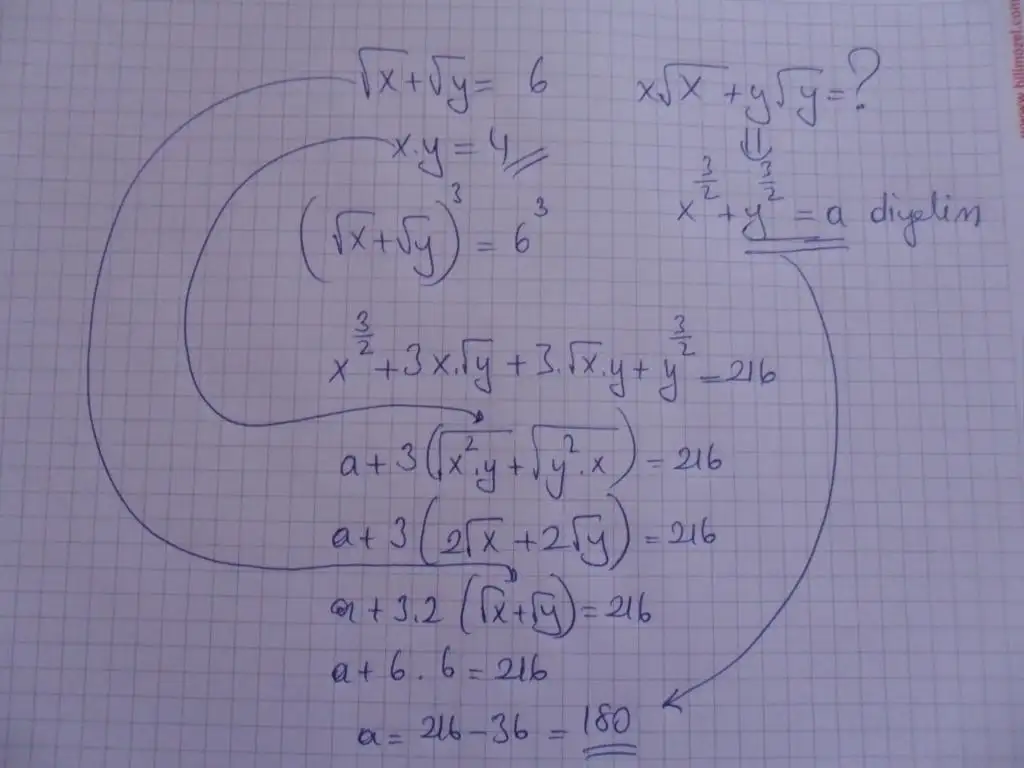 √x + √y = 6
x√x + y√y = ?
x.y = 4
x^(3/2) + y^(3/2) = a diyelim
(√x + √y)^3 = 6^3
x^(3/2) + 3x.√y + 3.√x.y + y^(3/2) = 216
a + 3(√(x^2.y) + √(y^2.x)) = 216
a + 3(2√x + 2√y) = 216
a + 3.2(√x + √y) = 216
a + 6.6 = 216
a = 216 - 36 = 180
www.bilimozel.com